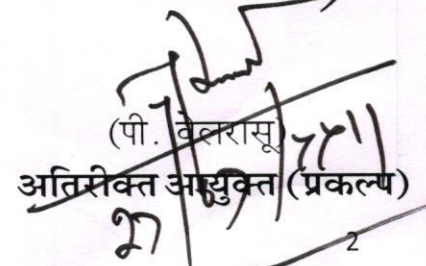 (पी. वेलरासू)
अतिरीक्त आयुक्त (प्रकल्प)
2